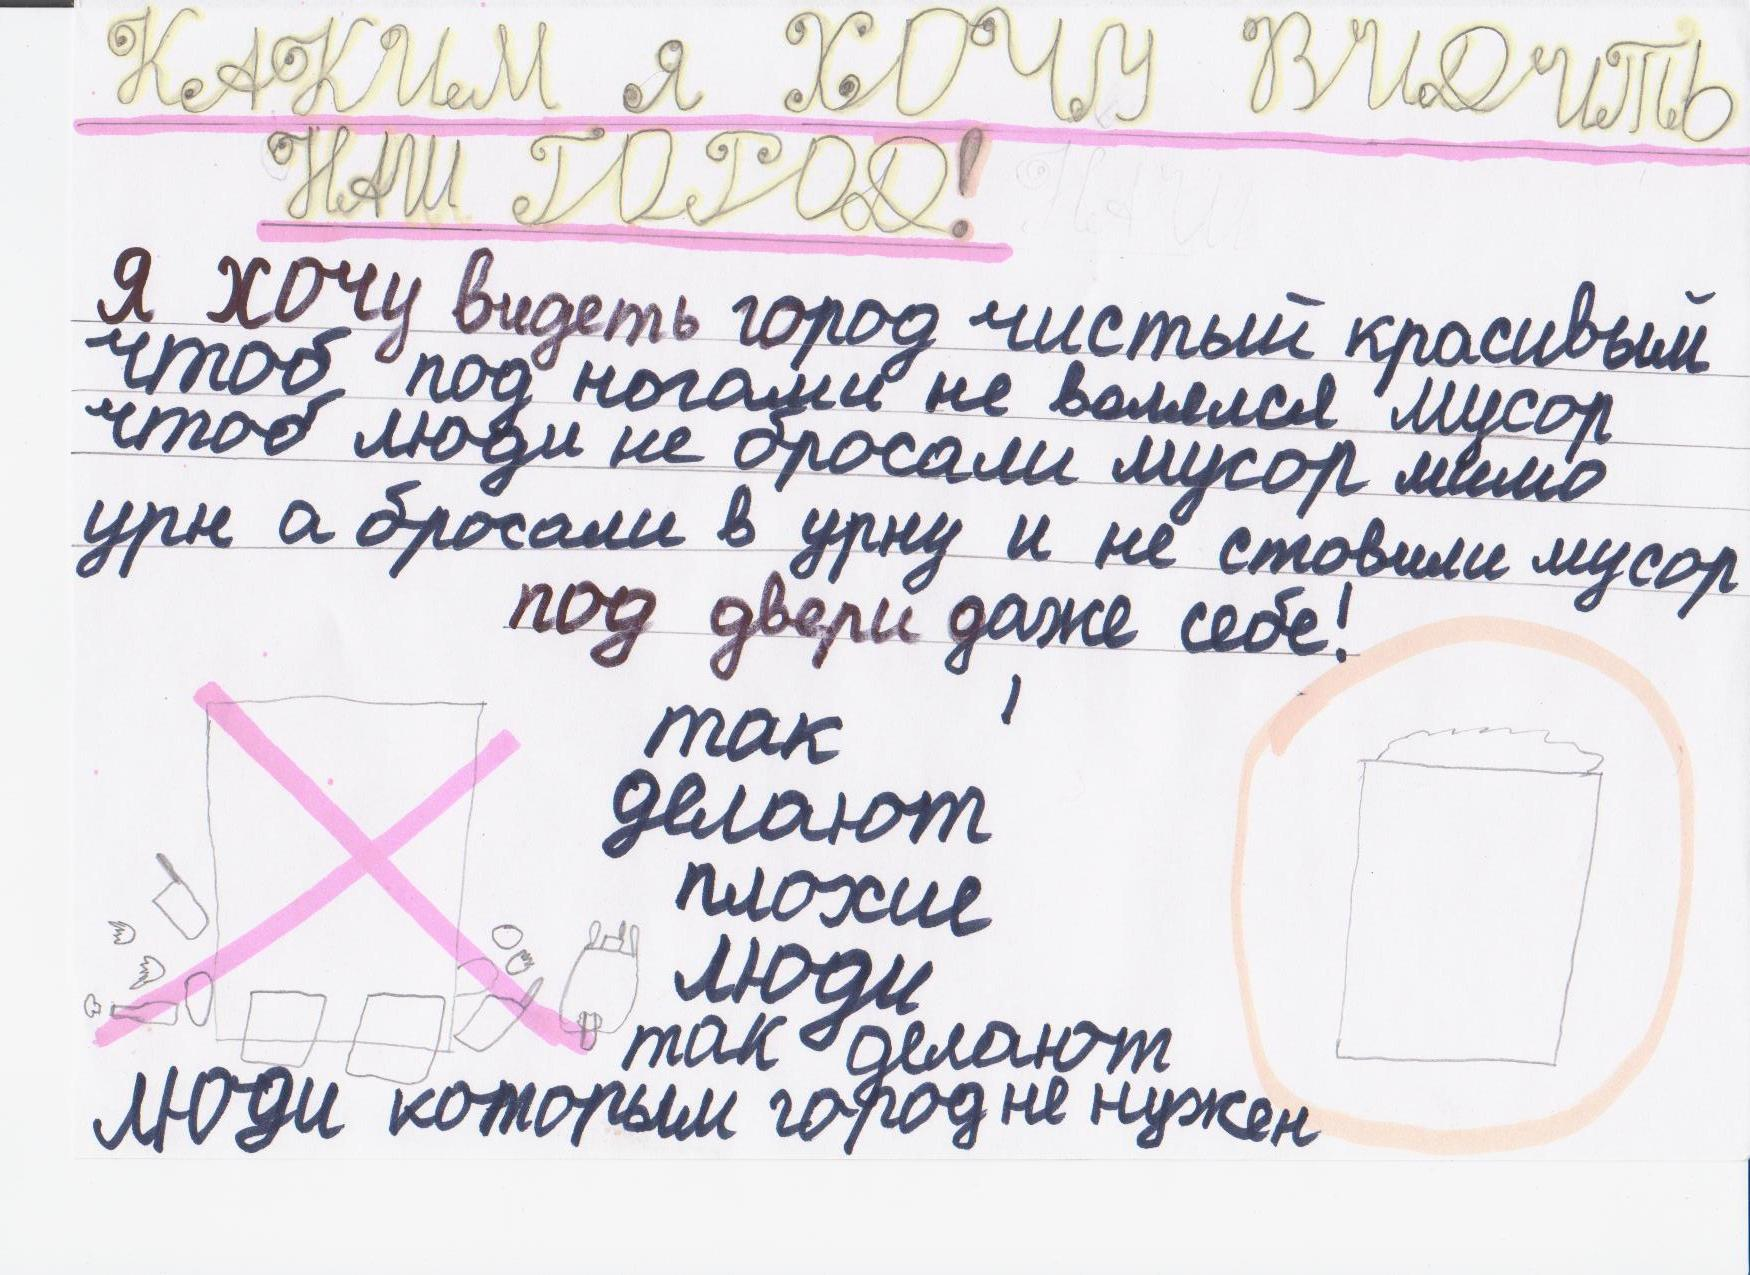 КАКИМ Я ХОЧУ ВИДИТЬ
НАШ ГОРОД!
Я хочу видеть город чистый красивый
чтоб под ногами не волялся мусор
чтоб люди не бросали мусор мимо
урн а бросали в урну и не стовили мусор
под двери даже себе!
так
делают
плохие
люди
так делают
люди которым город не нужен